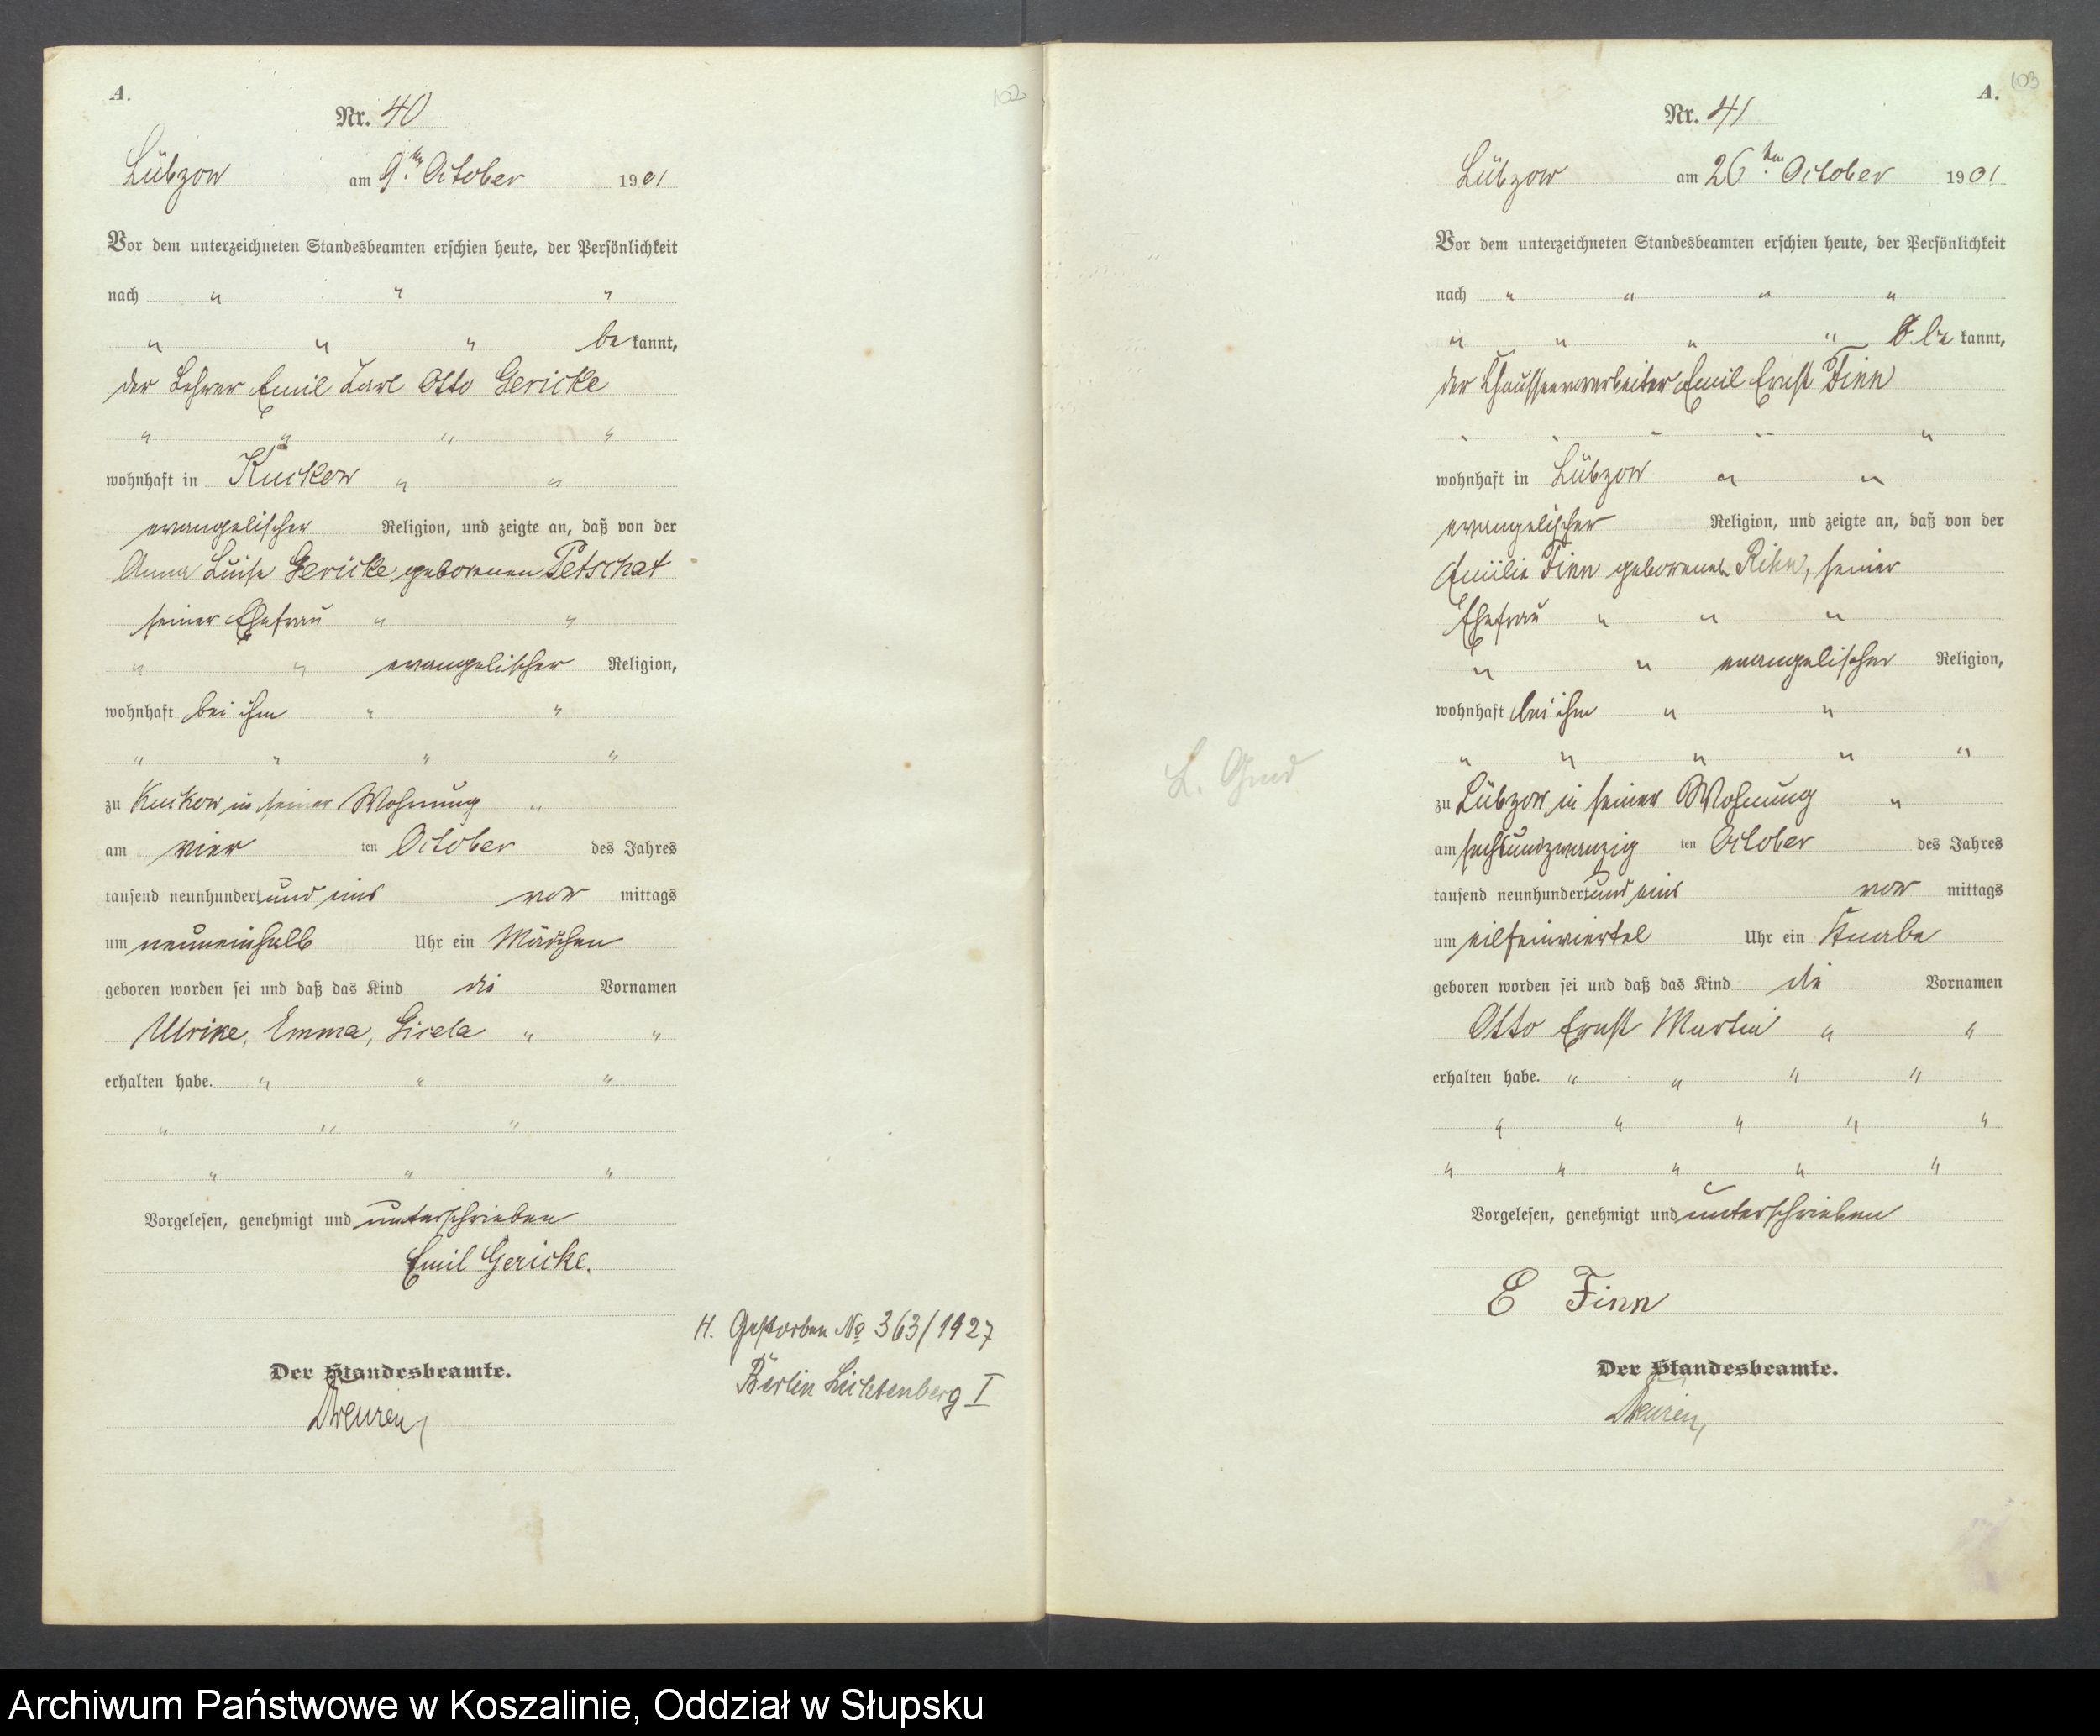 A.
102
Nr. 40
Lübzow am 9ten October 1901
Vor dem unterzeichneten Standesbeamten erschien heute, der Persönlichkeit
nach " " "
" " " be kannt,
der Lehrer Emil Carl Otto Gericke
" " " "
wohnhaft in Kuckow " "
evangelischer Religion, und zeigte an, daß von der
Anna Luise Gericke geborenen Petschat
seiner Ehefrau " "
" " evangelischer Religion,
wohnhaft bei ihm " "
" " " "
zu Kuckow in seiner Wohnung "
am vier ten October des Jahres
tausend neunhundert und eins vor mittags
um neuneinhalb Uhr ein Mädchen
geboren worden sei und daß das Kind die Vornamen
Ulrike, Emma, Gisela " "
erhalten habe. " " "
" " "
" " "
Vorgelesen, genehmigt und unterschrieben
Emil Gericke.
Der Standesbeamte.
H. Gestorben No 363/1927
Berlin Lichtenberg I
103
A.
Nr. 41
Lübzow am 26ten October 1901
Vor dem unterzeichneten Standesbeamten erschien heute, der Persönlichkeit
nach " " " "
" " " " be kannt,
der Chausseevorarbeiter Emil Ernst Finn
" " " " "
wohnhaft in Lübzow " "
evangelischer Religion, und zeigte an, daß von der
Emilie Finn geborenen, seiner
Ehefrau " " "
" " evangelischer Religion,
wohnhaft bei ihm " "
" " " " "
zu Lübzow in seiner Wohnung "
am sechsundzwanzig ten October des Jahres
tausend neunhundert und eins vor mittags
um eilfeinviertel Uhr ein Knabe
geboren worden sei und daß das Kind die Vornamen
Otto Ernst Martin " "
erhalten habe. " " " "
" " " " "
" " " " "
Vorgelesen, genehmigt und unterschrieben
E Finn
Der Standesbeamte.
Archiwum Państwowe w Koszalinie, Oddział w Słupsku